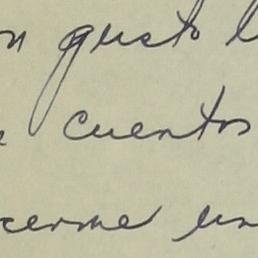 n gusto l
cuentos
cerme un